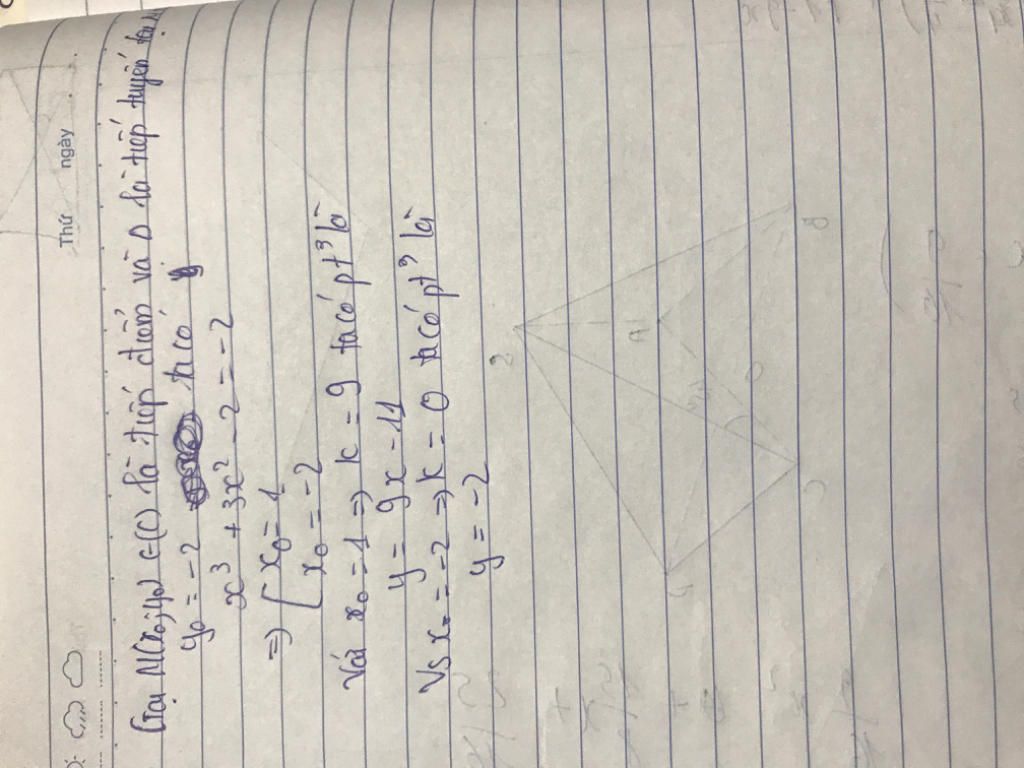 Thứ ngày
Gọi M(x₀;y₀) ∈(C) là tiếp điểm và Δ là tiếp tuyến tại M
y₀ = -2 ta có y
x³ + 3x² - 2 = -2
=> [ x₀ = 1
x₀ = -2
Với x₀ = 1 => k = 9 ta có pt³ là
y = 9x - 11
Vs x₀ = -2 => k = 0 ta có pt³ là
y = -2